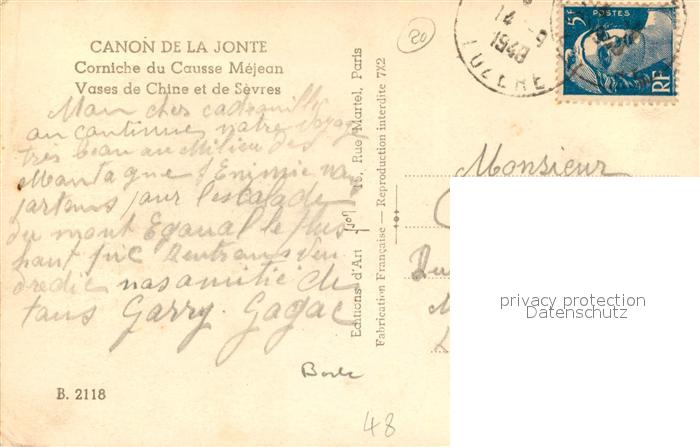 CANON DE LA JONTE
Corniche du Causse Méjean
Vases de Chine et de Sèvres
Mon cher
on continue notre voyage
très beau au milieu des
Montagne St Enimie nous
partons pour l'escalade
du mont Egoual le plus
haut pic Rentrons Ven
dredie nos amitié de
tous Garry. Gagac
B. 2118
Editions d'Art
15, Rue Martel, Paris
Fabrication Française — Reproduction interdite 7X2
20
14 - 9
1948
LOZERE
5F
POSTES
RF
Monsieur
privacy protection
Datenschutz
48